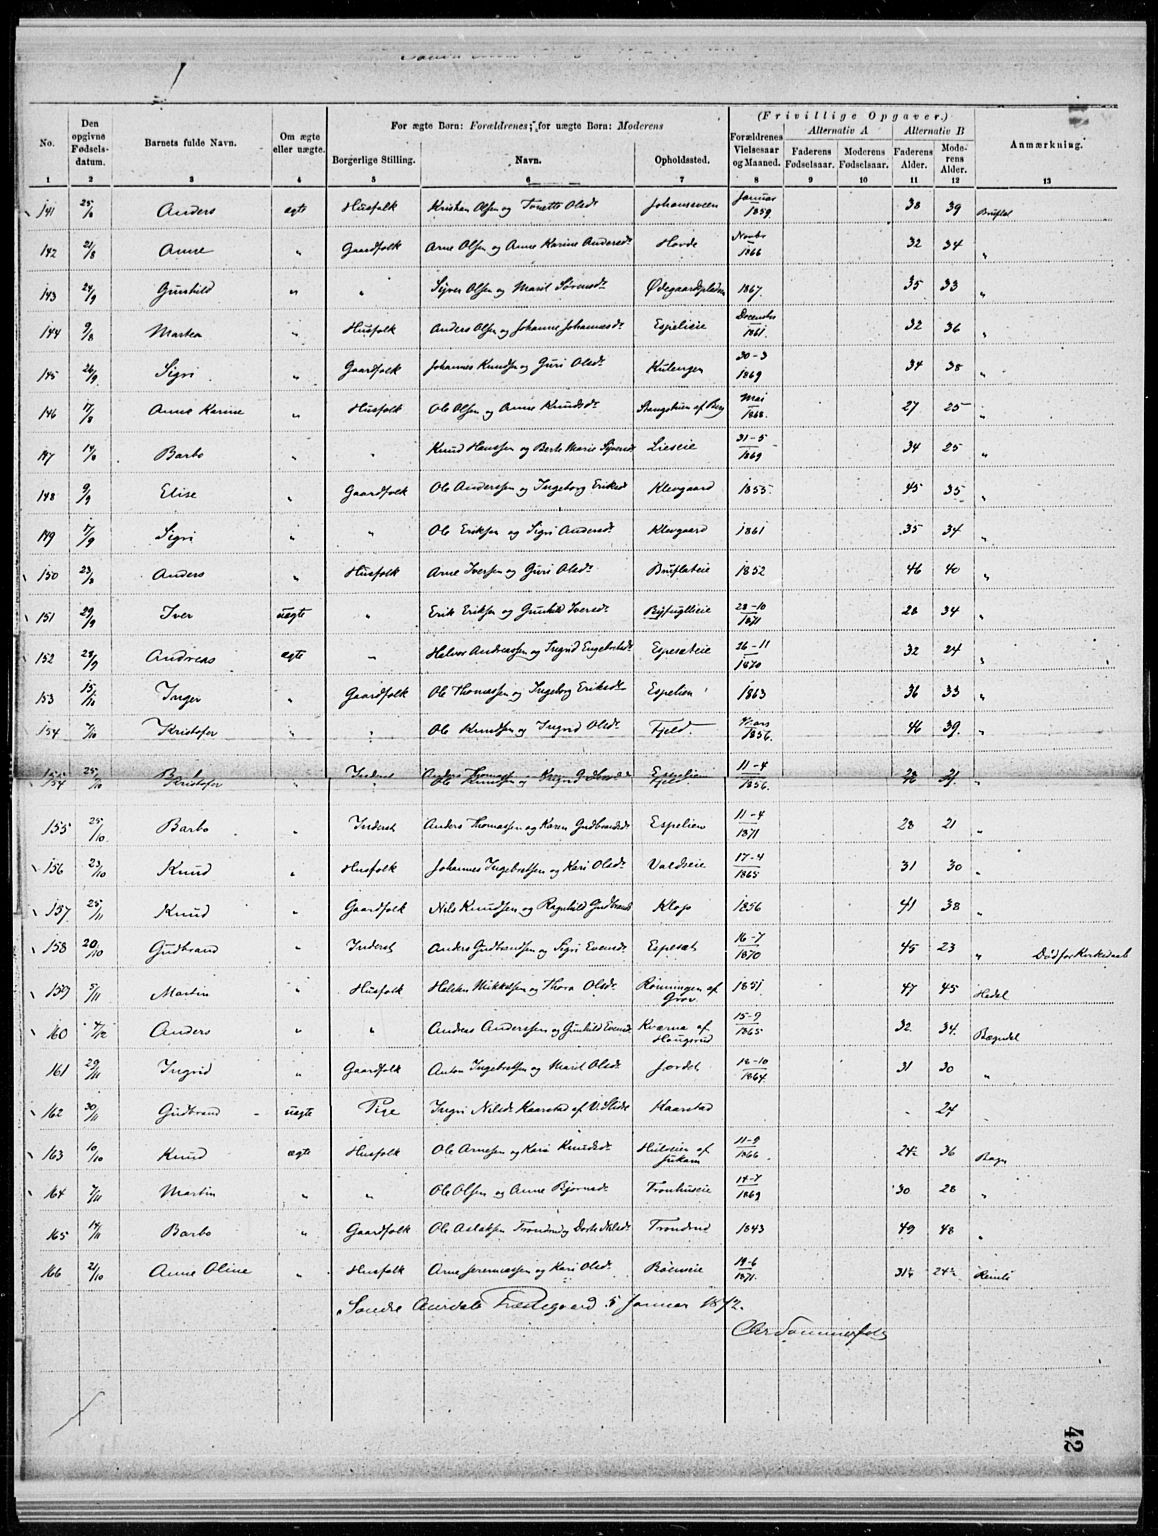 (Frivillige Opgaver.)
No. | Den opgivne Fødselsdatum. | Barnets fulde Navn. | Om ægte eller uægte. | For ægte Børn: Forældrenes; for uægte Børn: Moderens | Forældrenes Vielsesaar og Maaned. | Alternativ A | Alternativ B | Anmærkning.
Borgerlige Stilling. | Navn. | Opholdssted. | Faderens Fødselsaar. | Moderens Fødselsaar. | Faderens Alder. | Moderens Alder.
1 | 2 | 3 | 4 | 5 | 6 | 7 | 8 | 9 | 10 | 11 | 12 | 13
141 | 25/8 | Anders | ægte | Husfolk | Kristian Olsen og Olsdr | Johansveen | Januar 1859 | 38 | 39 | Bruflat
142 | 21/8 | Anne | " | Gaardfolk | Arne Olsen og Anne Karine Andersdr | Hovde | Novbr 1866 | 32 | 34 | "
143 | 24/9 | Gunhild | " | " | Syver Olsen og Marit Sørensdr | Ødegaardspladsen | 1867. | 35 | 33 | "
144 | 9/8 | Marthea | " | Husfolk | Anders Olsen og Johanne Johannesdr | Espelieie | December 1861 | 32 | 36 | "
145 | 26/9 | Sigri | " | Gaardfolk | Johannes Knudsen og Guri Olsdr | Kulengen | 30-3 1869 | 34 | 38 | "
146 | 17/8 | Anne Karine | " | Husfolk | Ole Olsen og Anne Knudsdr | Stangstuen af Berg | Mai 1868. | 27 | 25 | "
147 | 14/8 | Barbo | " | " | Knud Hanssen og Berte Marie Syversdr | Lieseie | 31-5 1869 | 34 | 25 | "
148 | 9/9 | Elise | " | Gaardfolk | Ole Anderssen og Ingeborg Eriksdr | Klevgaard | 1855 | 45 | 35 | "
149 | 17/9 | Sigri | " | " | Ole Eriksen og Sigri Andersdr | Klevgaard | 1861 | 35 | 34 | "
150 | 23/8 | Anders | " | Husfolk | Arne Iversen og Guri Olsdr | Bruflateie | 1852 | 46 | 40 | "
151 | 29/9 | Iver | uægte | " | Erik Eriksen og Gunhild Iversdr | Byfuglieie | 28-10 1871 | 28 | 34 | "
152 | 28/9 | Andreas | ægte | " | Halvor Andreassen og Ingrid Engebretsdr | Espesæteie | 26-11 1870 | 32 | 24 | "
153 | 15/10 | Inger | " | Gaardfolk | Ole Thomassen og Ingeborg Eriksdr | Espelien | 1863 | 36 | 33 | "
154 | 7/10 | Kristofer | " | " | Ole Knudsen og Ingrid Olsdr | Fjeld. | Mars 1856. | 46 | 39. | "
155 | 25/10 | Barbo | " | Inderst | Anders Thomassen og Karen Gudbrandsdr | Espelien | 11-4 1871 | 28 | 21 | "
156 | 23/10 | Knud | " | Husfolk | Johannes Ingebretsen og Kari Olsdr | Valdseie | 17-4 1865 | 31 | 30 | "
157 | 25/11 | Knud | " | Gaardfolk | Nils Knudsen og Ragnhild Gudbrandsdr | Klop | 1856 | 41 | 38 | "
158 | 20/10 | Gudbrand | " | Inderst | Anders Gudbrandsen og Sigri Evensdr | Espesæt | 16-7 1870 | 45 | 23 | " Død før Kirkedaab
159 | 5/11 | Martin | " | Husfolk | Mikkelsen og Thora Olsdr | Rønningen af Grøv | 1851 | 47 | 45 | Hedal
160 | 7/12 | Anders | " | " | Andreas Anderssen og Gunhild Evensdr | Kværna af Haugerud | 15-9 1865 | 32 | 34. | Bægndal
161 | 29/11 | Ingrid | " | Gaardfolk | Anton Ingebretsen og Marit Olsdr | Jordet | 18-10 1864. | 31 | 30 | "
162 | 30/11 | Gudbrand | uægte | Pige | Ingri Nilsdr Kaarstad af V. Slidre | Kaarstad | 24 | "
163 | 10/10 | Knud | ægte | Husfolk | Ole Arnesen og Kari Knudsdr | af Jukam | 11-9 1866 | 24½ | 36 | Bagn
164 | 7/11 | Martin | " | " | Ole Olsen og Anne Bjørnsdr | Tronhuseie | 14-7 1869 | 30 | 28 | "
165 | 14/11 | Barbo | " | Gaardfolk | Ole Aslaksen Trondrud og Dorte Nilsdr | Trondrud | 1843 | 49 | 48 | "
166 | 21/10 | Anne Oline | " | Husfolk | Arne Jeremiassen og Kari Olsdr | Bølineeie | 19-6 1871. | 31½ | 24½ | Reinli
Søndre Aurdals Præstegaard 5 Januar 1872.
Chr Sommerfelt
42